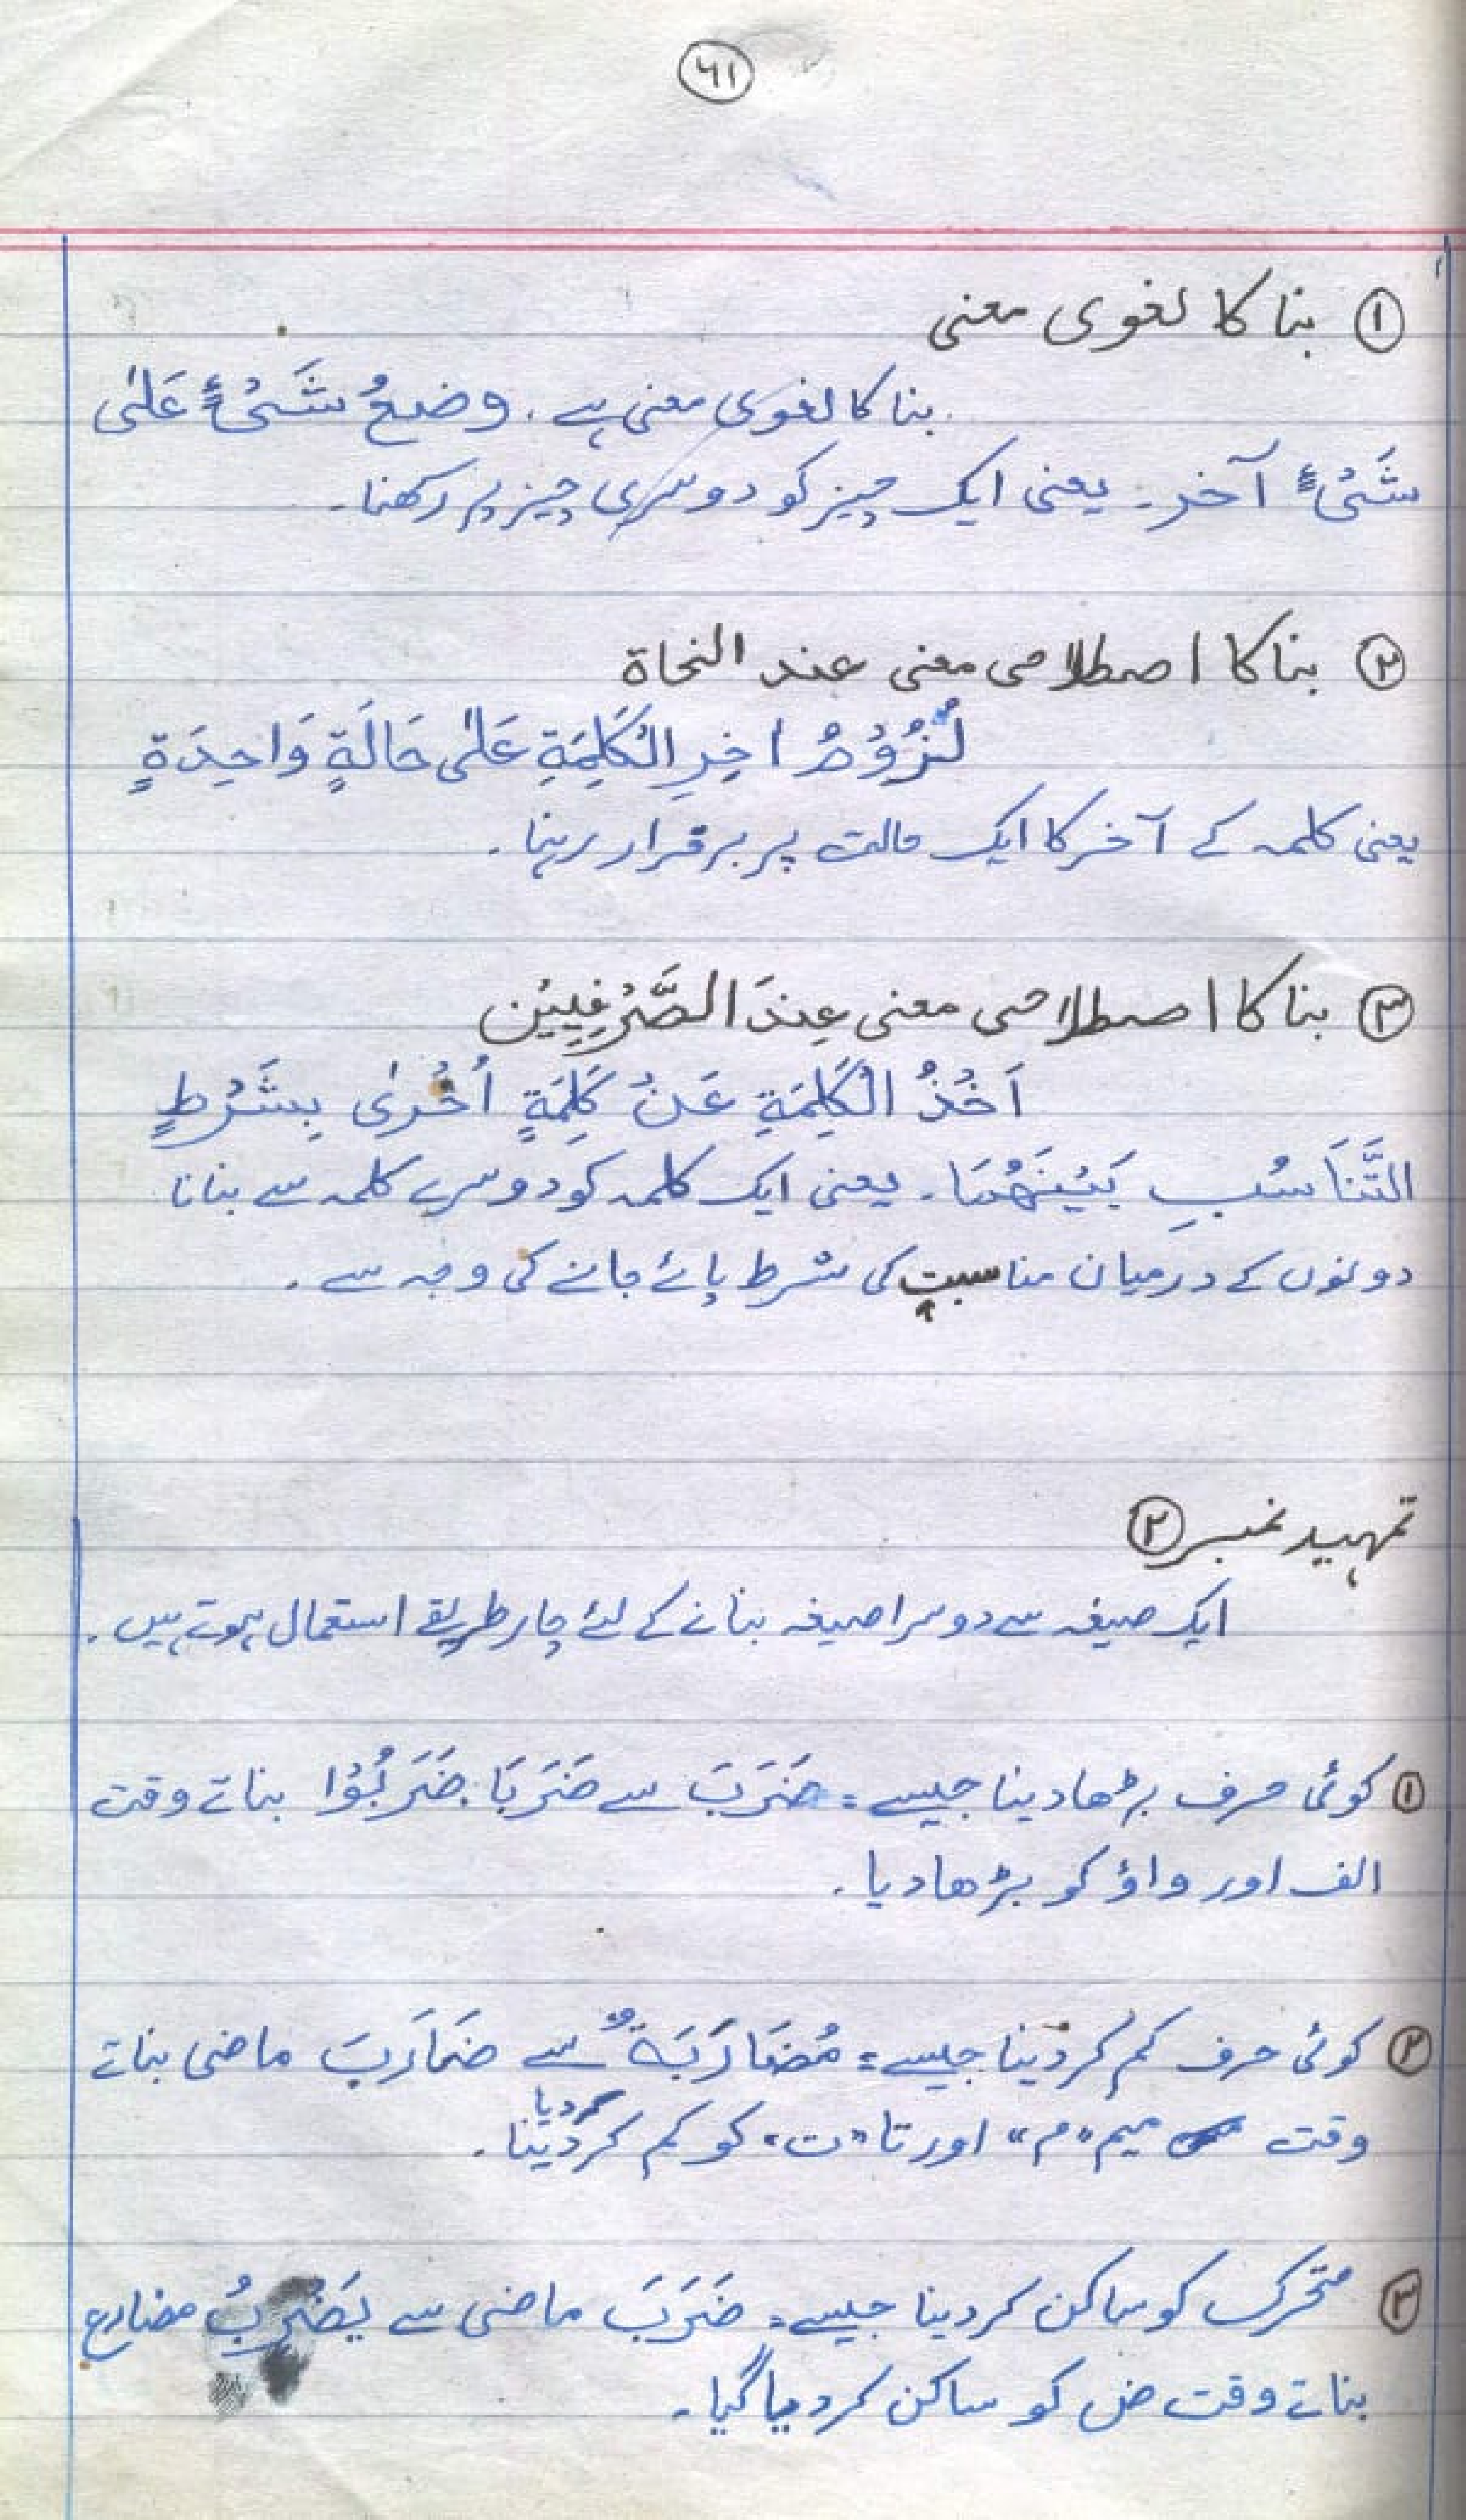 ۶۱
① بنا کا لغوی معنی
بنا کا لغوی معنی ہے۔ وضعُ شَیْءٍ عَلیٰ
شَیْءٍ آخر۔ یعنی ایک چیز کو دوسری چیز پر رکھنا۔
② بنا کا اصطلاحی معنی عند النحاة
لُزُوْمُ اٰخِرِ الْکَلِمَةِ عَلیٰ حَالَةٍ وَاحِدَةٍ
یعنی کلمہ کے آخر کا ایک حالت پر برقرار رہنا۔
③ بنا کا اصطلاحی معنی عِندَ الصَّرْفِیِیْن
اَخْذُ الْکَلِمَةِ عَنْ کَلِمَةٍ اُخْریٰ بِشَرْطِ
التَّنَاسُبِ بَیْنَهُمَا۔ یعنی ایک کلمہ کو دوسرے کلمہ سے بنانا
دونوں کے درمیان مناسبت کی شرط پائے جانے کی وجہ سے۔
تمہید نمبر ②
ایک صیغہ سے دوسرا صیغہ بنانے کے لئے چار طریقے استعمال ہوتے ہیں۔
① کوئی حرف بڑھا دینا جیسے: ضَرَبَ سے ضَرَبَا ضَرَبُوْا بناتے وقت
الف اور واؤ کو بڑھا دیا۔
② کوئی حرف کم کر دینا جیسے: مُضَارَبَةٌ سے ضَارَبَ ماضی بناتے
وقت میم "م" اور تا "ت" کو کم کر دینا۔
کردیا
③ متحرک کو ساکن کر دینا جیسے: ضَرَبَ ماضی سے یَضْرِبُ مضارع
بناتے وقت ض کو ساکن کر دیا گیا۔